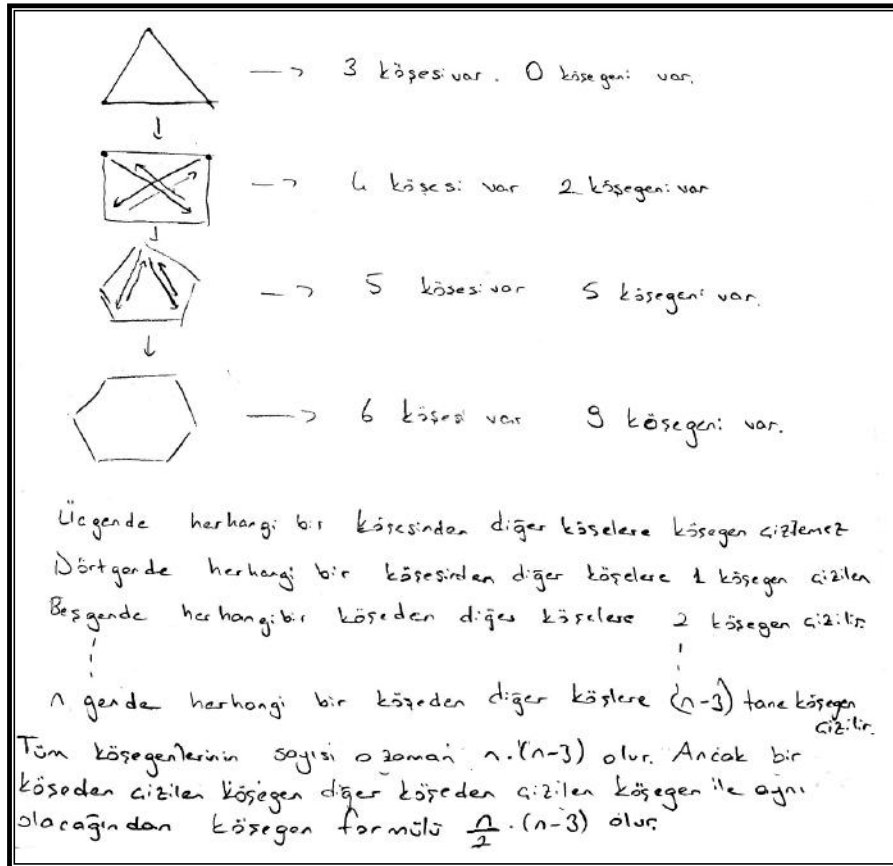 → 3 köşesi var. 0 köşegeni var.
→ 4 köşesi var 2 köşegeni var
→ 5 kösesi var 5 köşegeni var.
→ 6 köşesi var 9 köşegeni var.
Üçgende herhangi bir köşesinden diğer köşelere köşegen çizilemez
Dörtgende herhangi bir köşesinden diğer köşelere 1 köşegen çizilen
Beşgende herhangi bir köşeden diğer köşelere 2 köşegen çizilir.
n gende herhangi bir köşeden diğer köşlere (n-3) tane köşegen
çizilir.
Tüm köşegenlerinin sayısı o zaman n.(n-3) olur. Ancak bir
köşeden çizilen köşegen diğer köşeden çizilen köşegen ile aynı
olacağından köşegen formülü n/2 . (n-3) olur.